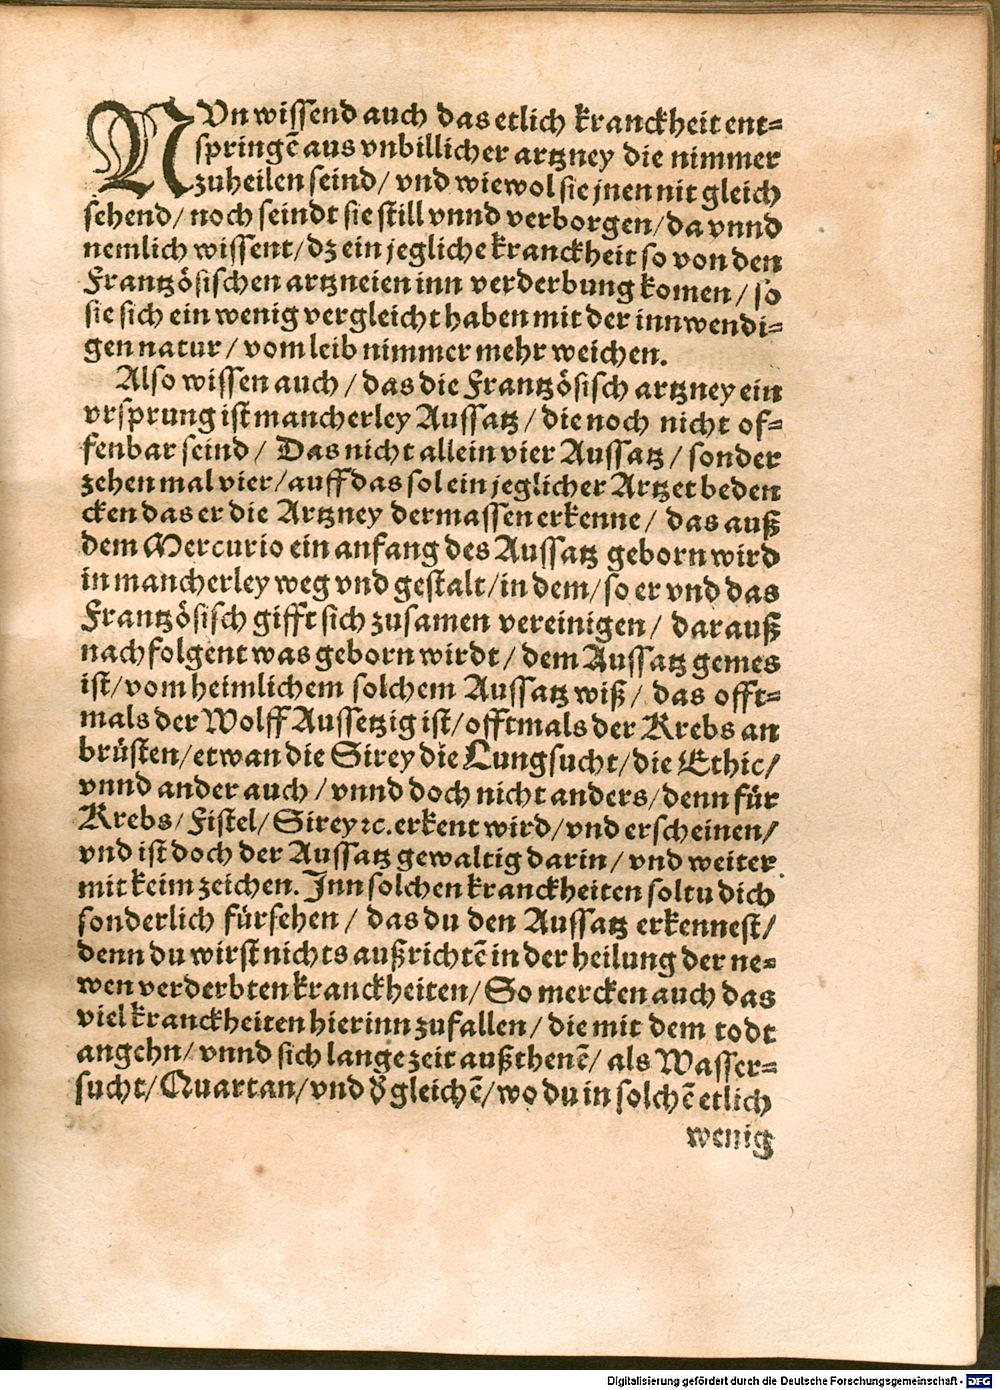 NUn wissend auch das etlich kranckheit ent=
springẽ aus vnbillicher artzney die nimmer
zuheilen seind/ vnd wiewol sie jnen nit gleich
sehend/ noch seindt sie still vnnd verborgen/ da vnnd
nemlich wissent/ dz ein jegliche kranckheit so von den
Frantzösischen artzneien inn verderbung komen/ so
sie sich ein wenig vergleicht haben mit der innwendi=
gen natur/ vom leib nimmer mehr weichen.
Also wissen auch/ das die Frantzösisch artzney ein
vrsprung ist mancherley Aussatz/ die noch nicht of=
fenbar seind/ Das nicht allein vier Aussatz/ sonder
zehen mal vier/ auff das sol ein jeglicher Artzet beden
cken das er die Artzney dermassen erkenne/ das auß
dem Mercurio ein anfang des Aussatz geborn wird
in mancherley weg vnd gestalt/ in dem/ so er vnd das
Frantzösisch gifft sich zusamen vereinigen/ darauß
nachfolgent was geborn wirdt/ dem Aussatz gemes
ist/ vom heimlichem solchem Aussatz wiß/ das offt=
mals der Wolff Aussetzig ist/ offtmals der Krebs an
brüsten/ etwan die Sirey die Lungsucht/ die Ethic/
vnnd ander auch/ vnnd doch nicht anders/ denn für
Krebs/ Fistel/ Sirey ꝛc. erkent wird/ vnd erscheinen/
vnd ist doch der Aussatz gewaltig darin/ vnd weiter
mit keim zeichen. Inn solchen kranckheiten soltu dich
sonderlich fürsehen/ das du den Aussatz erkennest/
denn du wirst nichts außrichtẽ in der heilung der ne=
wen verderbten kranckheiten/ So mercken auch das
viel kranckheiten hierinn zufallen/ die mit dem todt
angehn/ vnnd sich lange zeit außthenẽ/ als Wasser=
sucht/ Quartan/ vnd d̕gleichẽ/ wo du in solchẽ etlich
wenig
Digitalisierung gefördert durch die Deutsche Forschungsgemeinschaft - DFG